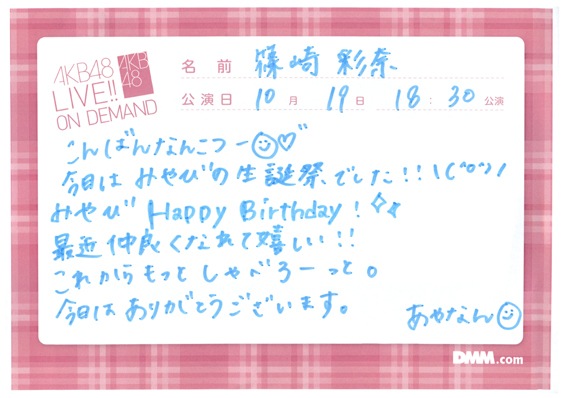 AKB48
LIVE!!
ON DEMAND
AKB
48
名前 篠崎 彩奈
公演日 10月 19日 18:30公演
こんばんなんこつー☺♡
今日は みやびの生誕祭でした!!\(^o^)/
みやび Happy Birthday!✧
最近仲良くなれて嬉しい!!
これからもっと しゃべろーっと。
今日は ありがとうございます。
あやなん☺
DMM.com